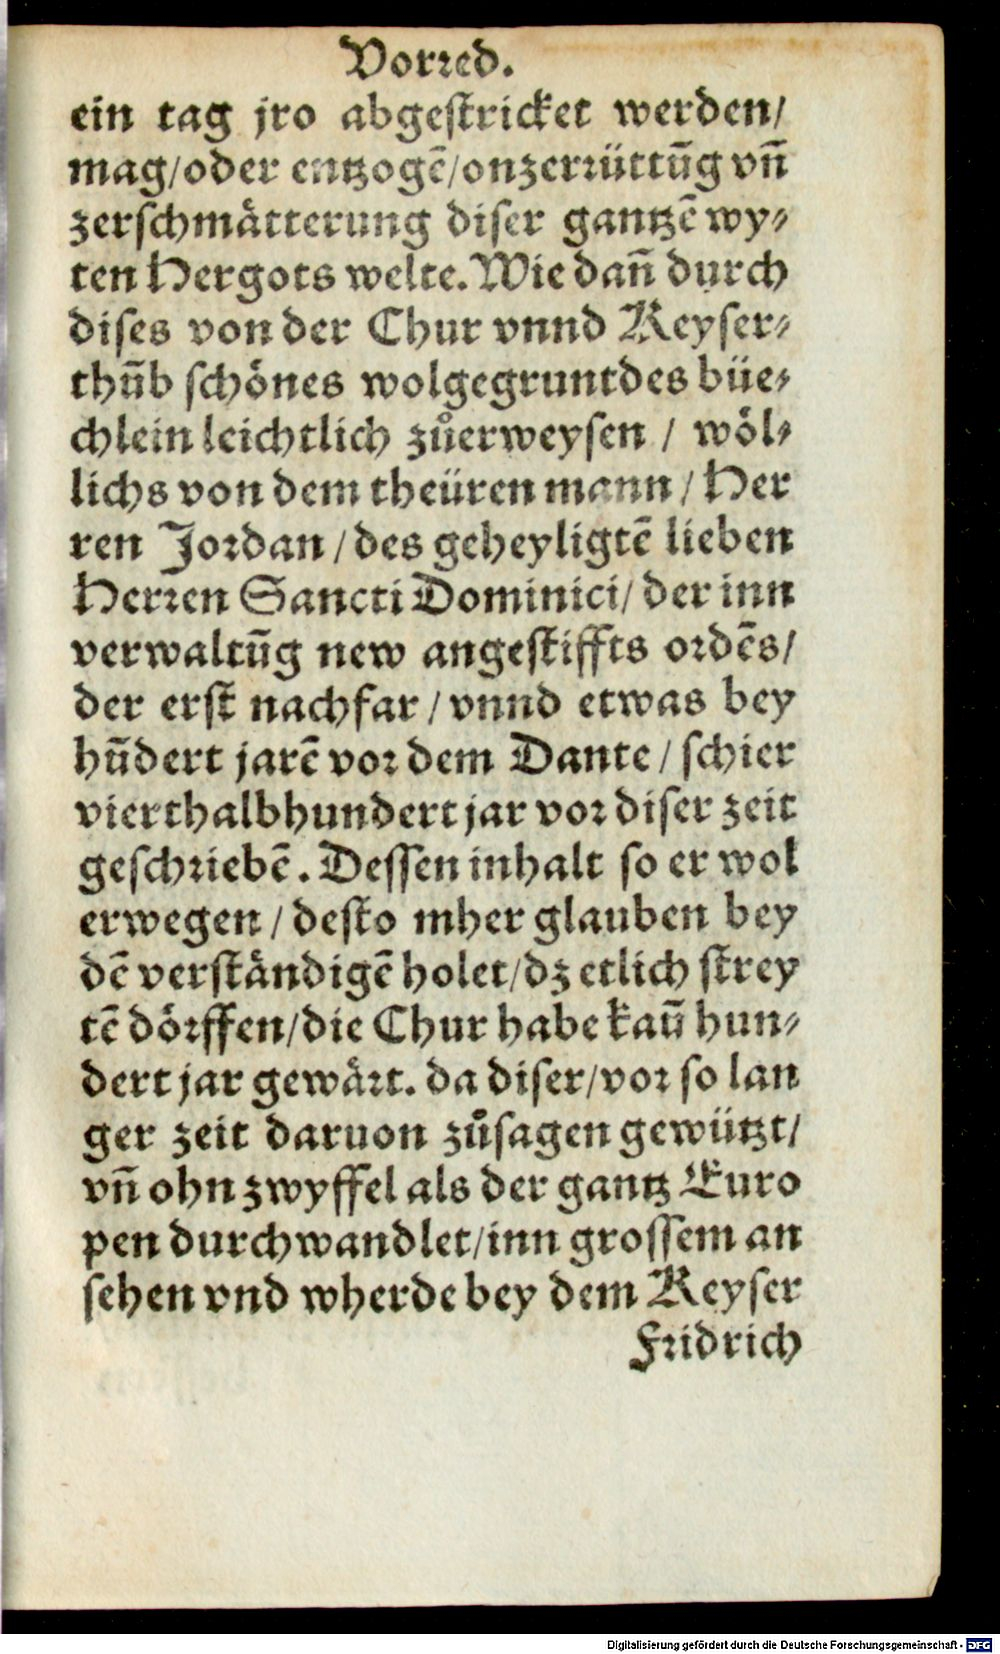 Vorꝛed.
ein tag jro abgeſtricket werden/
mag/oder entzogē/onzerꝛüttūg vñ
zerſchmätterung diſer gantzē wy⸗
ten Hergots welte. Wie dañ durch
diſes von der Chur vnnd Keyſer⸗
thūb ſchönes wolgegruntdes büe⸗
chlein leichtlich zůerweyſen / wöl⸗
lichs von dem theüren mann / Her
ren Joꝛdan / des geheyligtē lieben
Herꝛen Sancti Dominici/ der inn
verwaltūg new angeſtiffts oꝛdēs/
der erſt nachfar / vnnd etwas bey
hūdert jarē voꝛ dem Dante / ſchier
vierthalbhundert jar voꝛ diſer zeit
geſchꝛiebē. Deſſen inhalt ſo er wol
erwegen / deſto mher glauben bey
dē verſtändigē holet/dz etlich ſtrey
tē döꝛffen/die Chur habe kaū hun⸗
dert jar gewäꝛt. da diſer/voꝛ ſo lan
ger zeit daruon zůſagen gewützt/
vñ ohn zwyffel als der gantz Euro
pen durchwandlet/inn groſſem an
ſehen vnd wherde bey dem Keyſer
Fꝛidrich
Digitalisierung gefördert durch die Deutsche Forschungsgemeinschaft - DFG